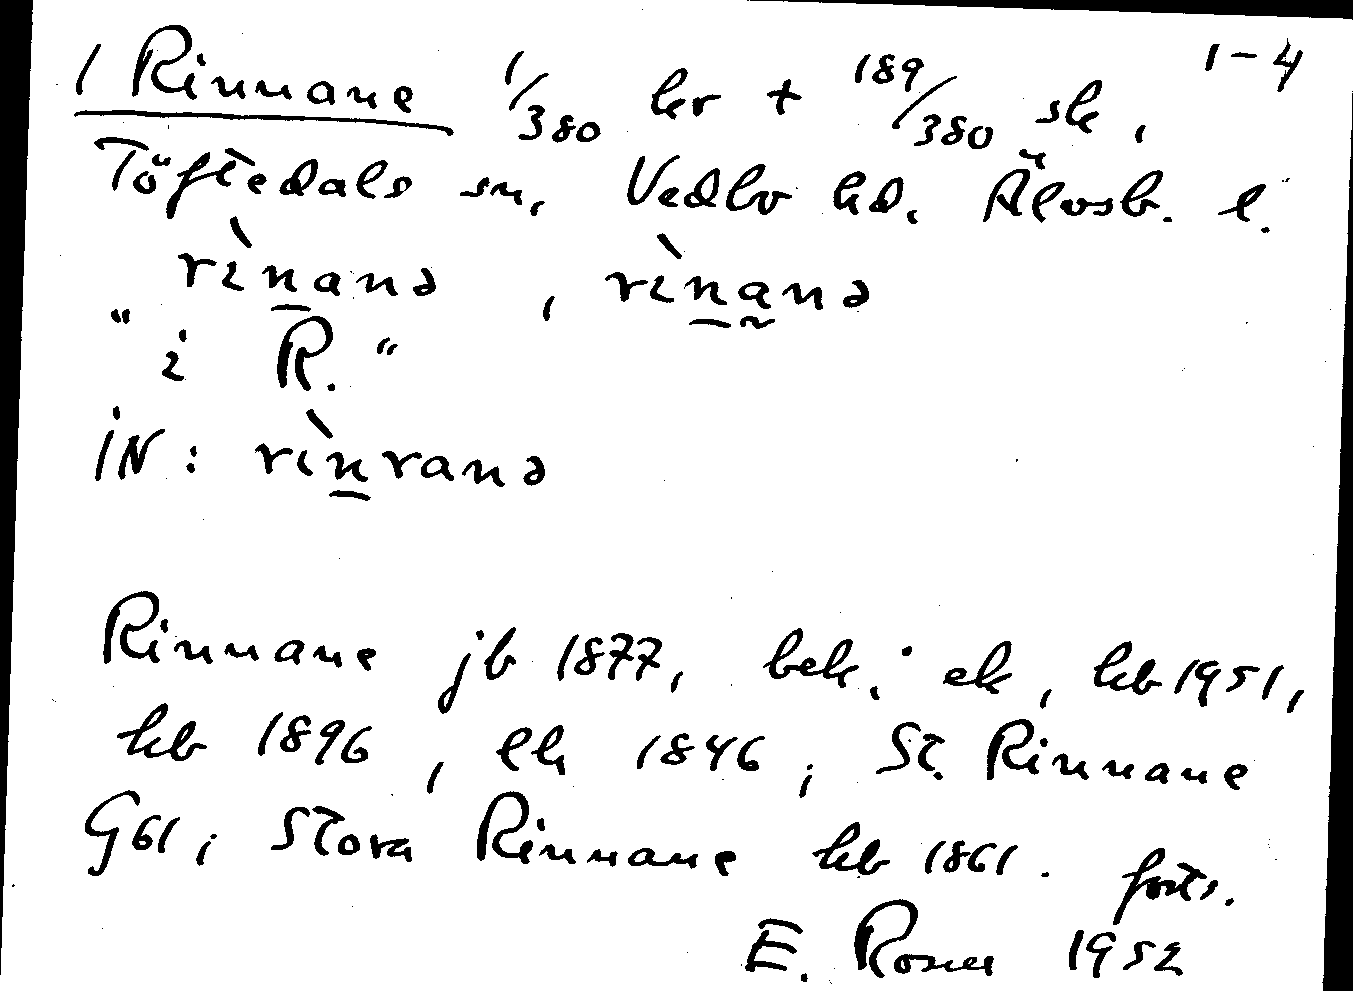 1 Rinnane 1/380 kr + 189/380 sk, 1-4
Töftedals sn, Vedbo hd. Älvsb. l.
rìnanə, rìnanə
"i R."
iN: rìnranə
Rinnane jb 1877, bek. ek, kb 1951,
kb 1896, lh 1846, St. Rinnane
G61, Stora Rinnane kb 1861. forts.
E. Rosen 1952